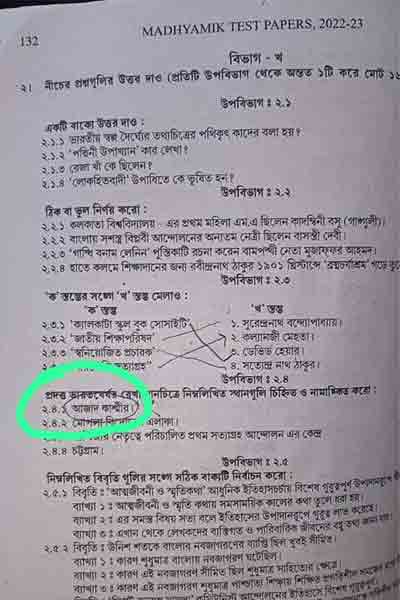 132
MADHYAMIK TEST PAPERS, 2022-23
বিভাগ - খ
২। নীচের প্রশ্নগুলির উত্তর দাও (প্রতিটি উপবিভাগ থেকে অন্তত ১টি করে মোট ১৬
উপবিভাগ ঃ ২.১
একটি বাক্যে উত্তর দাও :
২.১.১ ভারতীয় স্বল্প দৈর্ঘ্যের তথ্যচিত্রের পথিকৃৎ কাদের বলা হয়?
২.১.২ 'পদ্মিনী উপাখ্যান' কার লেখা?
২.১.৩ রেজা খাঁ কে ছিলেন?
২.১.৪ 'লোকহিতবাদী' উপাধিতে কে ভূষিত হন?
উপবিভাগ ঃ ২.২
ঠিক বা ভুল নির্ণয় করো :
২.২.১ কলকাতা বিশ্ববিদ্যালয় - এর প্রথম মহিলা এম.এ ছিলেন কাদম্বিনী বসু (গাঙ্গুলী)।
২.২.২ বাংলায় সশস্ত্র বিপ্লবী আন্দোলনের অন্যতম নেত্রী ছিলেন বাসন্তী দেবী।
২.২.৩ 'গান্ধি বনাম লেনিন' পুস্তিকাটি রচনা করেন বামপন্থী নেতা মুজাফফর আহমদ।
২.২.৪ হাতে কলমে শিক্ষাদানের জন্য রবীন্দ্রনাথ ঠাকুর ১৯০১ খ্রিস্টাব্দে 'ব্রহ্মচর্যাশ্রম' গড়ে
উপবিভাগ ঃ ২.৩
'ক' স্তম্ভের সঙ্গে 'খ' স্তম্ভ মেলাও :
'ক' স্তম্ভ 'খ' স্তম্ভ
২.৩.১ 'ক্যালকাটা স্কুল বুক সোসাইটি' ১. সুরেন্দ্রনাথ বন্দ্যোপাধ্যায়।
২.৩.২ 'জাতীয় শিক্ষাপরিষদ' ২. কল্যানজী মেহতা।
২.৩.৩ 'স্বনিয়োজিত প্রচারক' ৩. ডেভিড হেয়ার।
৪. সত্যেন্দ্র নাথ ঠাকুর।
উপবিভাগ ঃ ২.৪
প্রদত্ত ভারতবর্ষের নিম্নলিখিত স্থানগুলি চিহ্নিত ও নামাঙ্কিত করো :
২.৪.১ আজাদ কাশ্মীর।
২.৪.২ মোপলা এলাকা।
নেতৃত্বে পরিচালিত প্রথম সত্যাগ্রহ আন্দোলন এর কেন্দ্র
২.৪.৪ চট্টগ্রাম।
উপবিভাগ ঃ ২.৫
নিম্নলিখিত বিবৃতি গুলির সঙ্গে সঠিক ব্যাখ্যাটি নির্বাচন করো :
২.৫.১ বিবৃতি : 'আত্মজীবনী ও স্মৃতিকথা' আধুনিক ইতিহাসচর্চায় বিশেষ গুরুত্বপূর্ণ
ব্যাখ্যা ১ : আত্মজীবনী ও স্মৃতি কথায় সমসাময়িক কালের কথা তুলে ধরা হয়।
ব্যাখ্যা ২ : এর সমস্ত বিষয় সত্য বলে ইতিহাসের উপাদানরূপে গুরুত্ব লাভ করেছে।
ব্যাখ্যা ৩ : এখান থেকে লেখকদের ব্যক্তিগত ও পারিবারিক জীবনের বহু তথ্য জানা যায়।
২.৫.২ বিবৃতি : উনিশ শতকে বাংলার নবজাগরণের ব্যাপ্তি ছিল খুবই সীমিত।
ব্যাখ্যা ১ : কারণ শুধুমাত্র বাংলায় নবজাগরণ ঘটেছিল।
ব্যাখ্যা ২ : কারণ এই নবজাগরণ সীমিত ছিল শুধুমাত্র সাহিত্যের ক্ষেত্রে।
ব্যাখ্যা ৩ : কারণ এই নবজাগরণ শুধুমাত্র পাশ্চাত্য শিক্ষায় শিক্ষিত